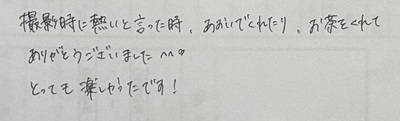 撮影時に熱いと言った時、あおいでくれたり、お茶をくれて
ありがとうございました^^♡
とっても楽しかったです!